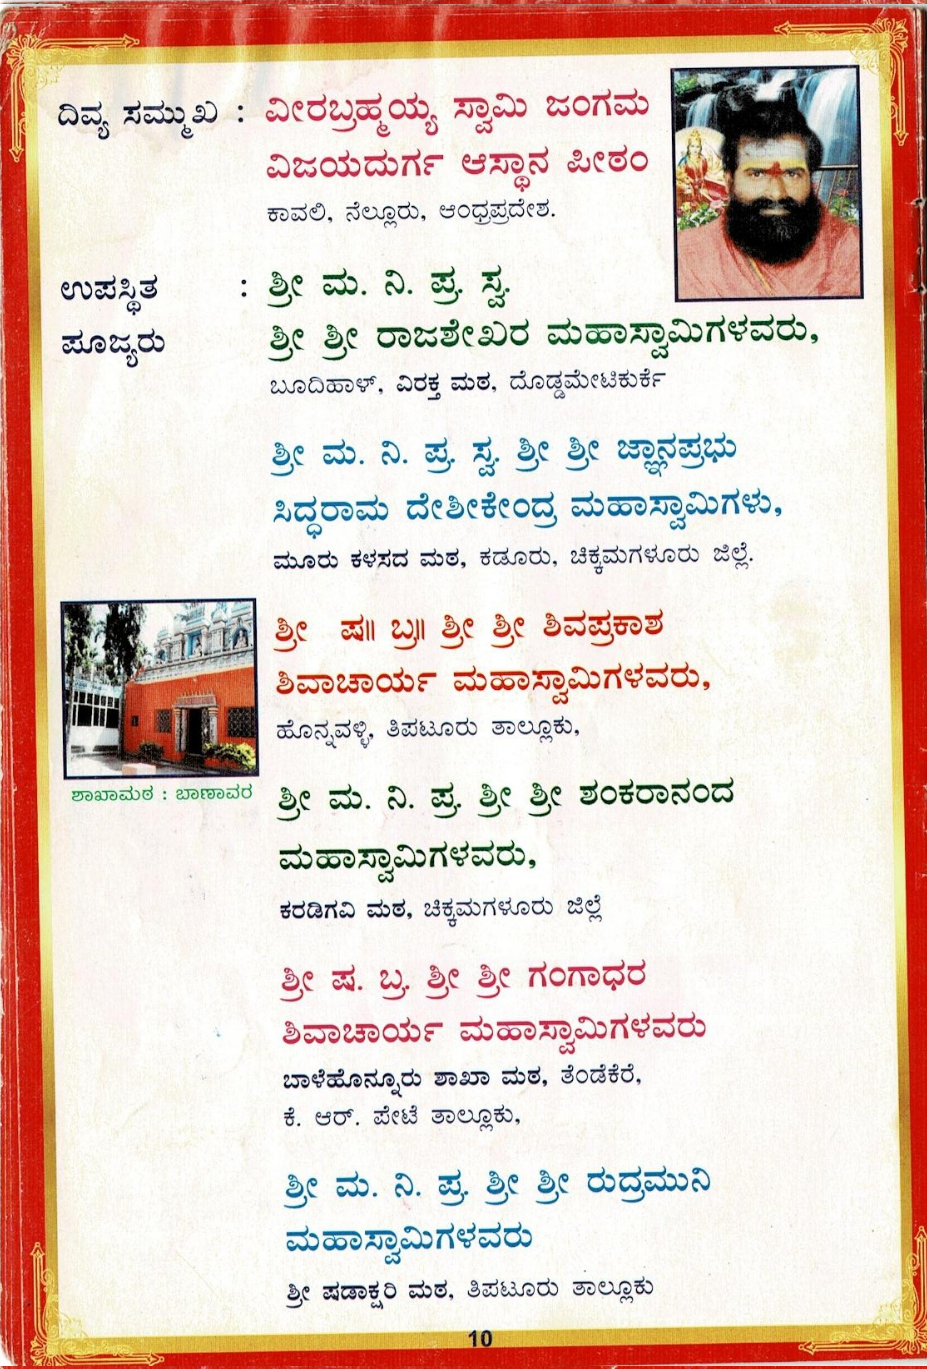 ದಿವ್ಯ ಸಮ್ಮುಖ : ವೀರಬ್ರಹ್ಮಯ್ಯ ಸ್ವಾಮಿ ಜಂಗಮ
ವಿಜಯದುರ್ಗ ಆಸ್ಥಾನ ಪೀಠಂ
ಕಾವಲಿ, ನೆಲ್ಲೂರು, ಆಂಧ್ರಪ್ರದೇಶ.
ಉಪಸ್ಥಿತ : ಶ್ರೀ ಮ. ನಿ. ಪ್ರ. ಸ್ವ.
ಪೂಜ್ಯರು ಶ್ರೀ ಶ್ರೀ ರಾಜಶೇಖರ ಮಹಾಸ್ವಾಮಿಗಳವರು,
ಬೂದಿಹಾಳ್, ವಿರಕ್ತ ಮಠ, ದೊಡ್ಡಮೇಟಿಕುರ್ಕೆ
ಶ್ರೀ ಮ. ನಿ. ಪ್ರ. ಸ್ವ. ಶ್ರೀ ಶ್ರೀ ಜ್ಞಾನಪ್ರಭು
ಸಿದ್ಧರಾಮ ದೇಶೀಕೇಂದ್ರ ಮಹಾಸ್ವಾಮಿಗಳು,
ಮೂರು ಕಳಸದ ಮಠ, ಕಡೂರು, ಚಿಕ್ಕಮಗಳೂರು ಜಿಲ್ಲೆ.
ಶ್ರೀ ಷ॥ ಬ್ರ॥ ಶ್ರೀ ಶ್ರೀ ಶಿವಪ್ರಕಾಶ
ಶಿವಾಚಾರ್ಯ ಮಹಾಸ್ವಾಮಿಗಳವರು,
ಹೊನ್ನವಳ್ಳಿ, ತಿಪಟೂರು ತಾಲ್ಲೂಕು,
ಶಾಖಾಮಠ : ಬಾಣಾವರ
ಶ್ರೀ ಮ. ನಿ. ಪ್ರ. ಶ್ರೀ ಶ್ರೀ ಶಂಕರಾನಂದ
ಮಹಾಸ್ವಾಮಿಗಳವರು,
ಕರಡಿಗವಿ ಮಠ, ಚಿಕ್ಕಮಗಳೂರು ಜಿಲ್ಲೆ
ಶ್ರೀ ಷ. ಬ್ರ. ಶ್ರೀ ಶ್ರೀ ಗಂಗಾಧರ
ಶಿವಾಚಾರ್ಯ ಮಹಾಸ್ವಾಮಿಗಳವರು
ಬಾಳೆಹೊನ್ನೂರು ಶಾಖಾ ಮಠ, ತೆಂಡೆಕೆರೆ,
ಕೆ. ಆರ್. ಪೇಟೆ ತಾಲ್ಲೂಕು,
ಶ್ರೀ ಮ. ನಿ. ಪ್ರ. ಶ್ರೀ ಶ್ರೀ ರುದ್ರಮುನಿ
ಮಹಾಸ್ವಾಮಿಗಳವರು
ಶ್ರೀ ಷಡಾಕ್ಷರಿ ಮಠ, ತಿಪಟೂರು ತಾಲ್ಲೂಕು
10